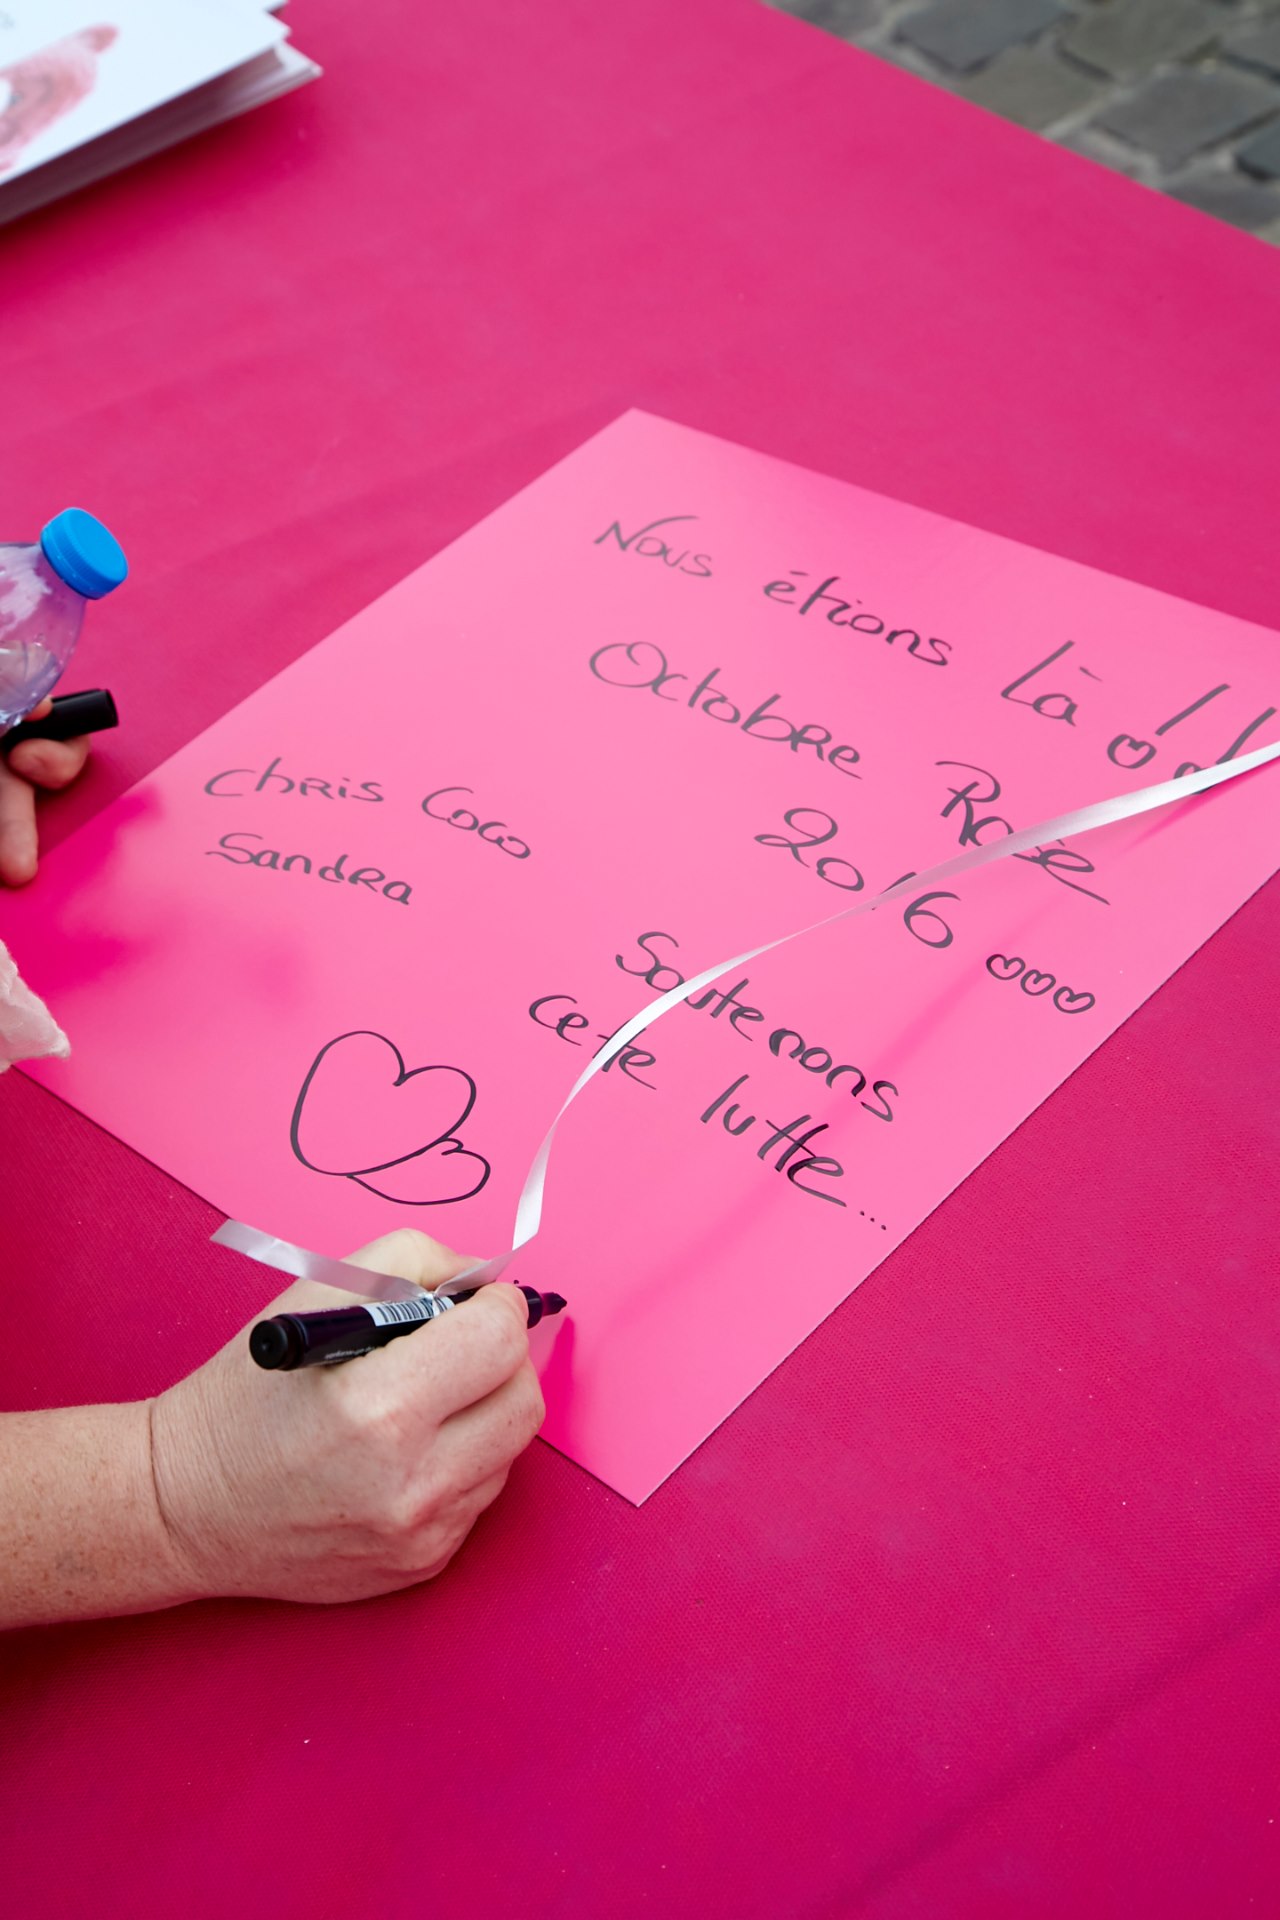 Nous étions là !!
Octobre Rose
2016
Soutenons
cette lutte...
Chris Coco
Sandra